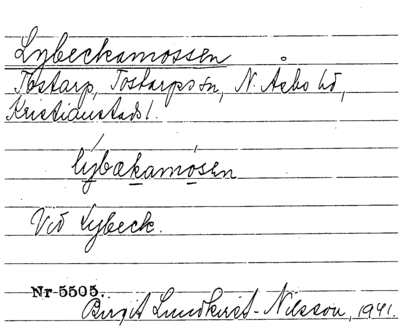 Lybeckamossen
Tostarp, Tostarps sn, N. Åsbo hd,
Kristianstads l.
lýbækamòsen
Vid Lybeck.
Nr 5505.
Birgit Lundkvist-Nilsson, 1941.